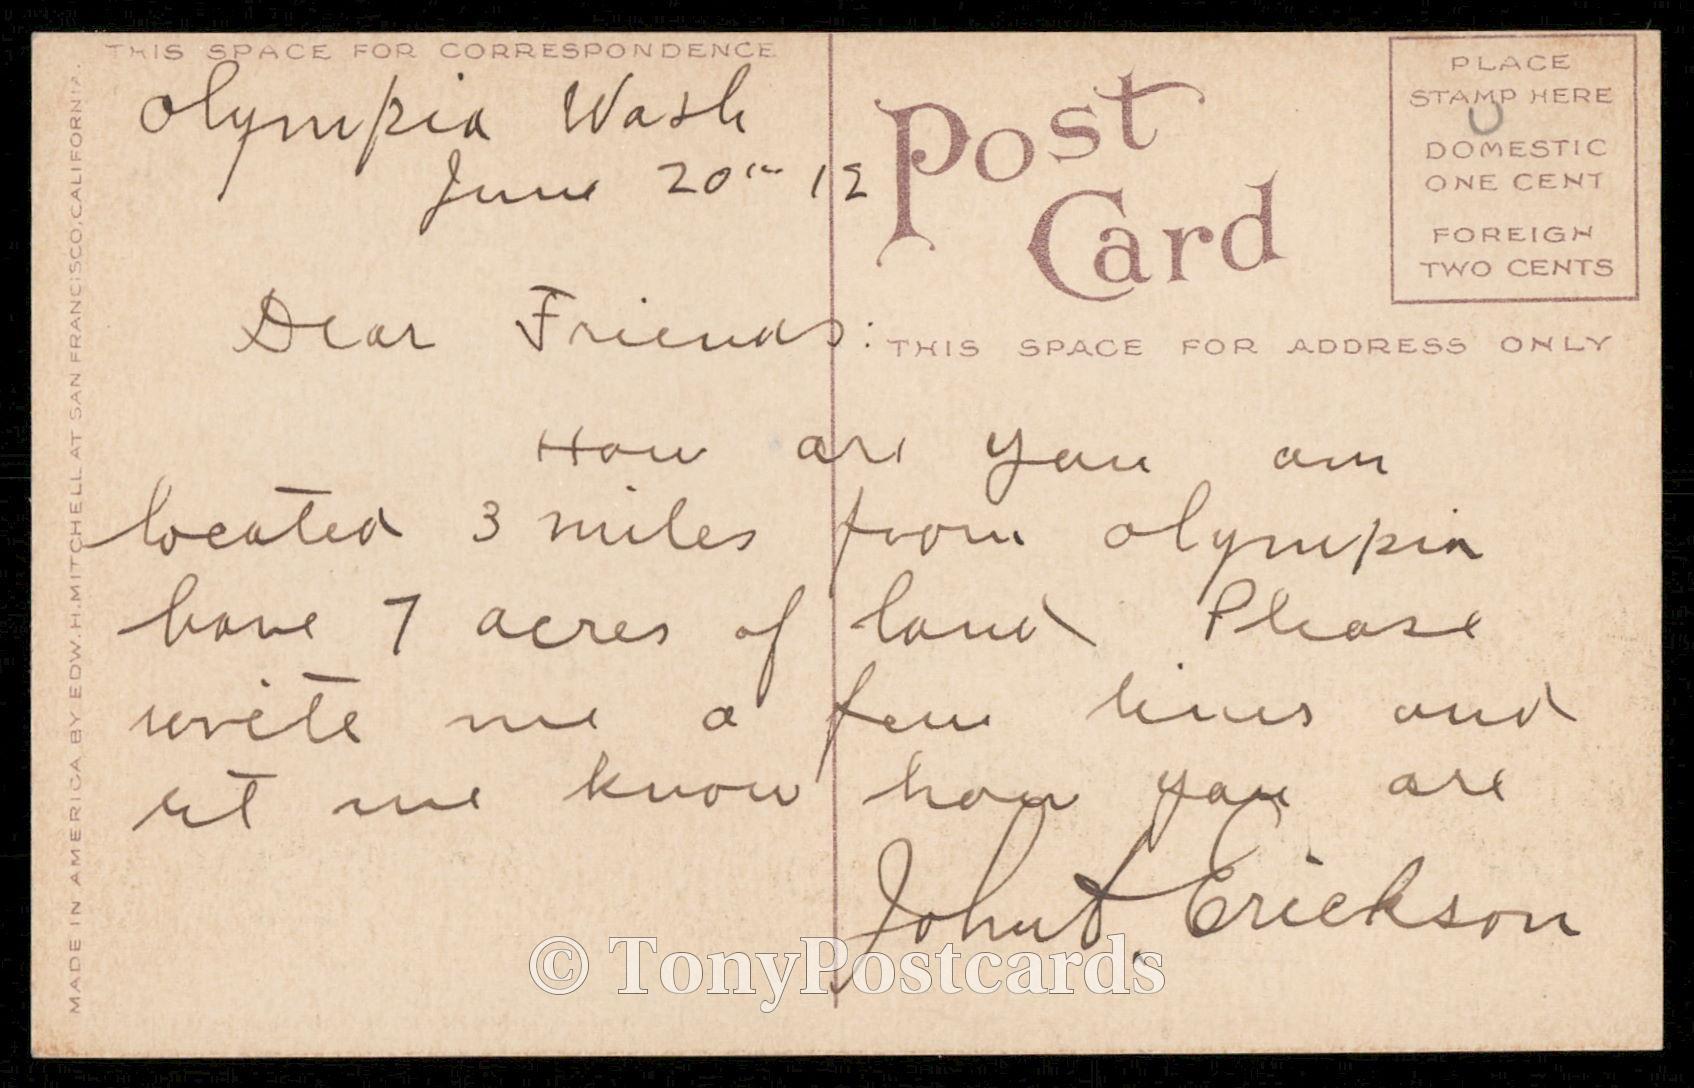 THIS SPACE FOR CORRESPONDENCE
Olympia Wash
June 20th 12
Post
Card
PLACE
STAMP HERE
DOMESTIC
ONE CENT
FOREIGN
TWO CENTS
THIS SPACE FOR ADDRESS ONLY
Dear Friends:
How are you am
located 3 miles from Olympia
have 7 acres of land Please
write me a few lines and
let me know how you are
John Erickson
MADE IN AMERICA BY EDW. H. MITCHELL AT SAN FRANCISCO, CALIFORNIA.
© TonyPostcards